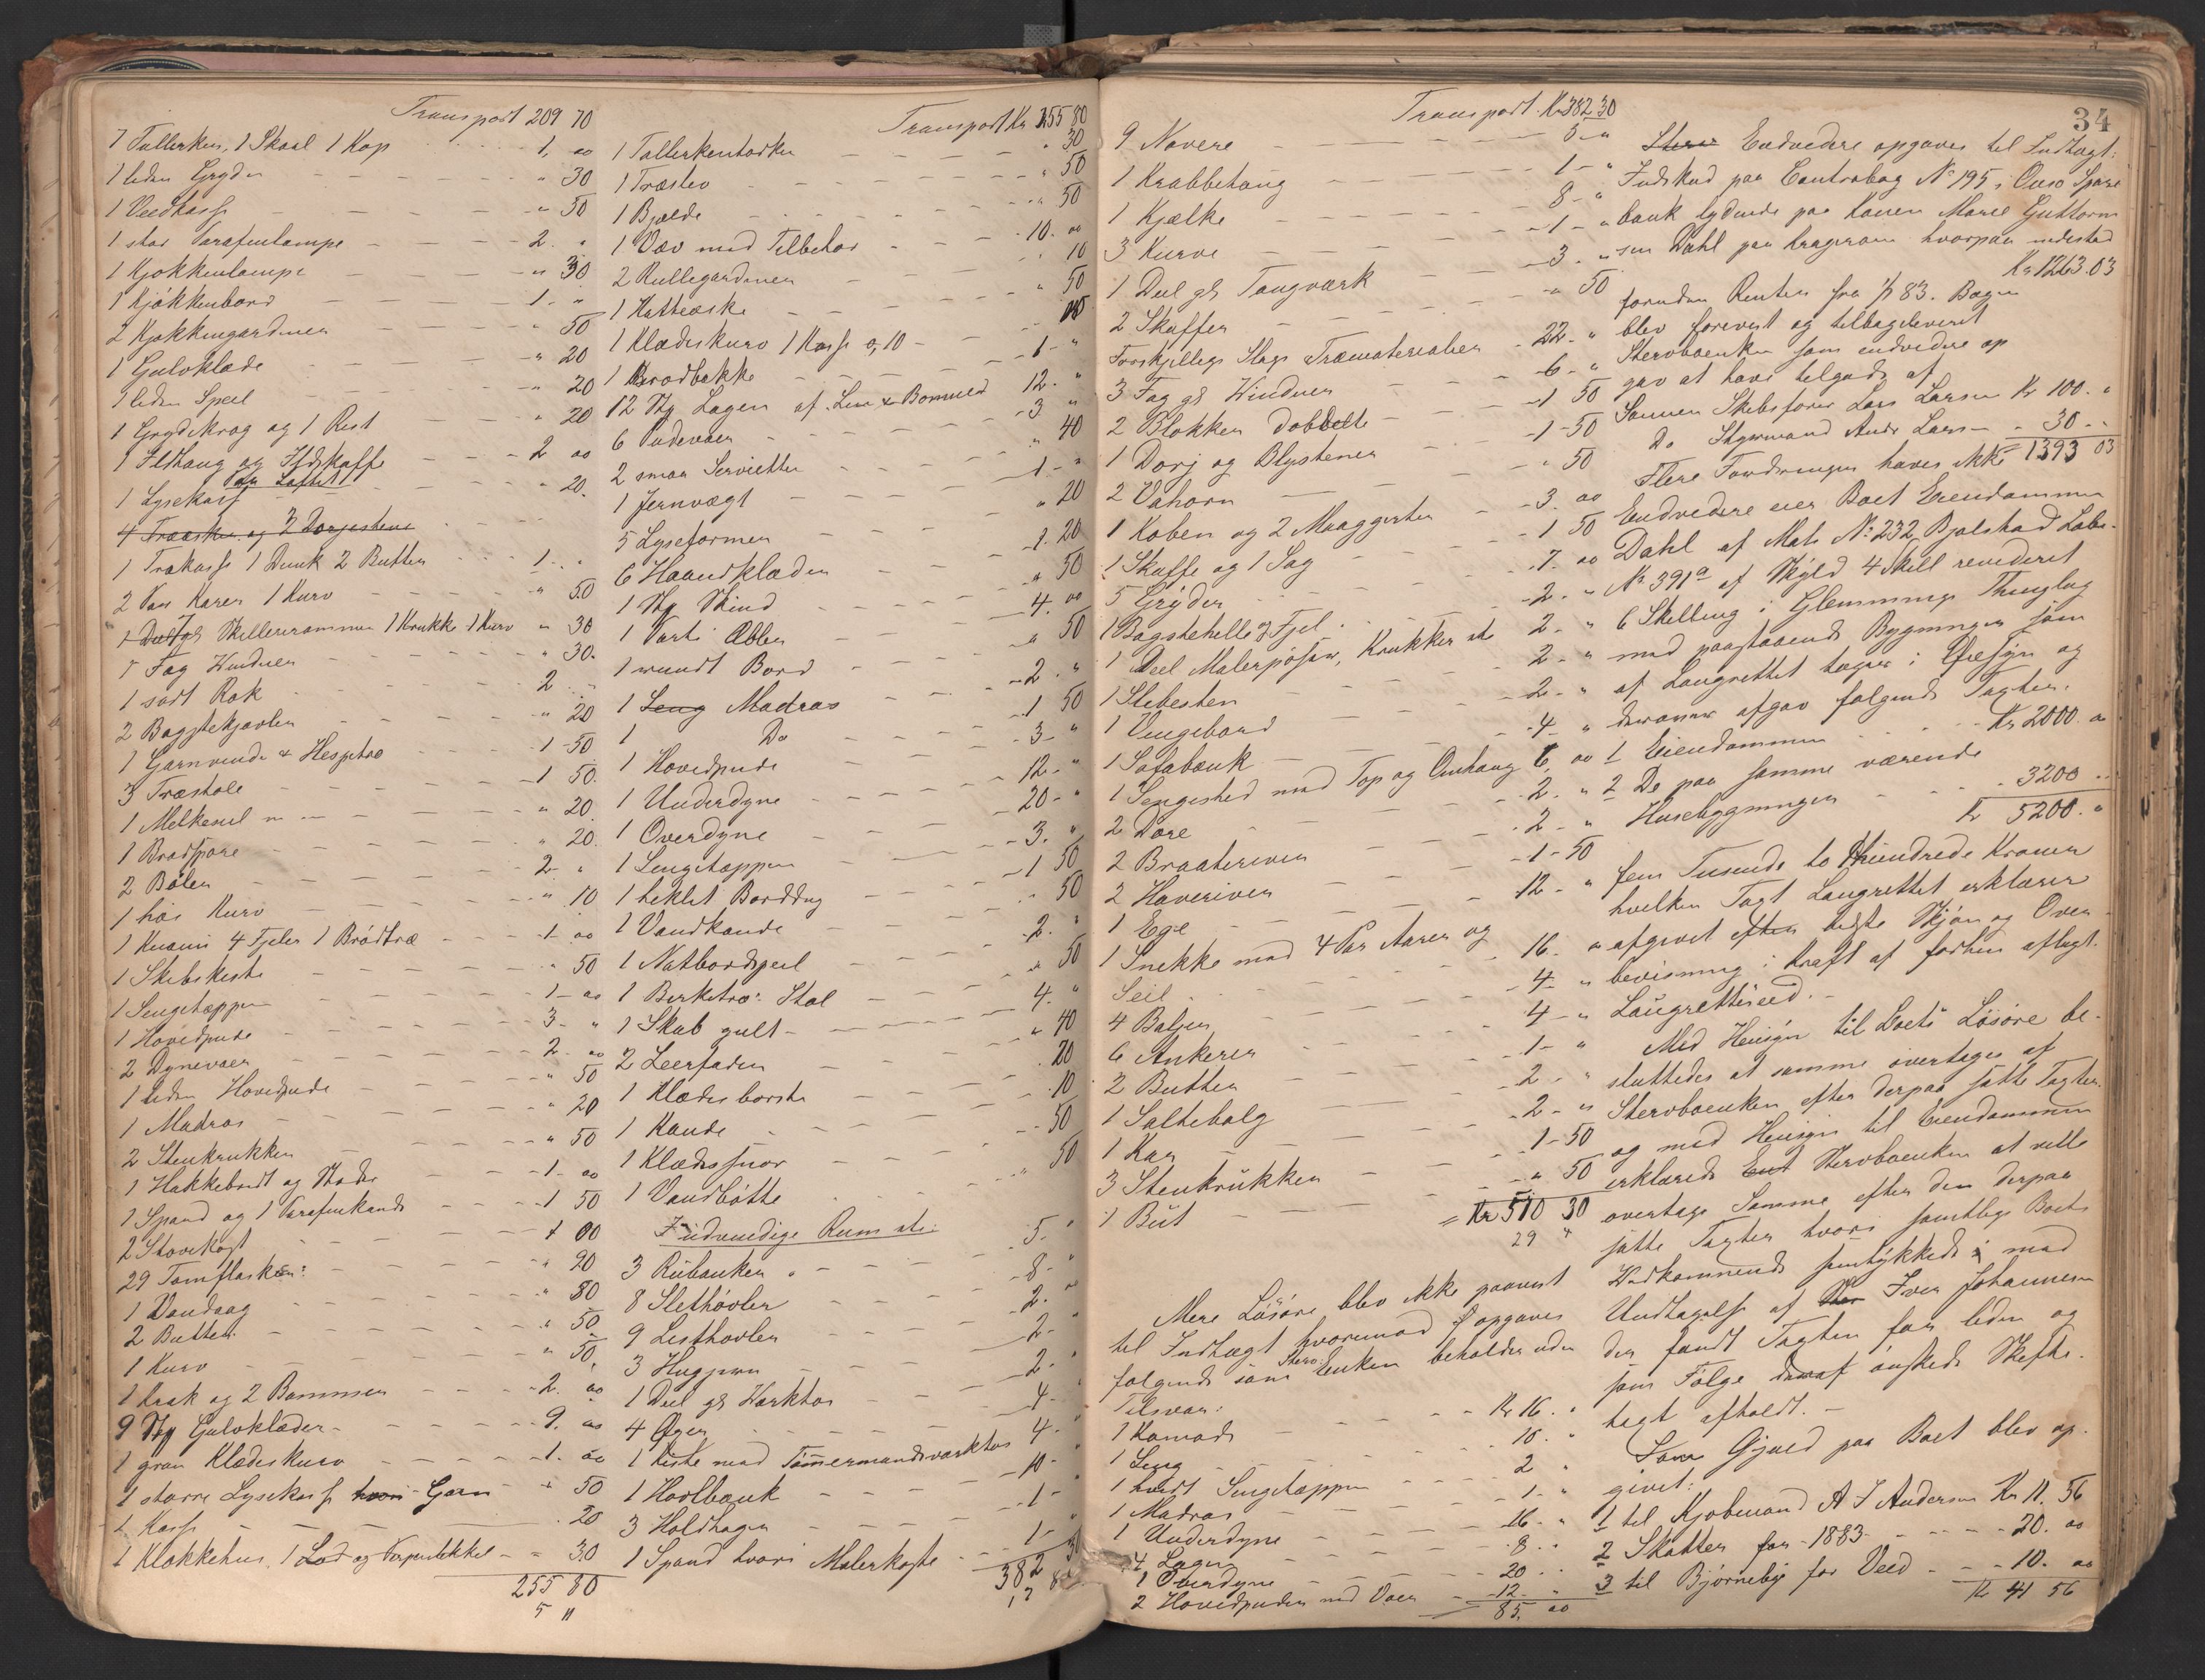 Transport 209 70
7 Tallerken, 1 Skaal 1 Kop 1, oo
1 liden Gryde " 30
1 Vedkasse " 50
1 stor Parafinlampe 2. "
1 Kjøkkenlampe " 30
1 Kjökkenbord 1. "
2 Kjøkkengardiner " 50
1 Gulvklæde " 20
1 liden Speil " 20
1 Grydekrog og 1 Rist " 20
1 Ildtang og Ildskuffe 2 oo
Paa Loftet
1 Lysekasse " 20.
4 Træsker og 2 Dorjestene
1 Trækasse 1 Dunk 2 Butter 1. "
2 Par Karer 1 Kurv " 50
1 Deel gl Skillerirammer 1 Krukke 1 Kurv " 30
1 Fag Vinduer " 30.
1 sort Rok 2 "
2 Bagstekjævler " 20
1 Garnvinde & Hespetræ 1 50
3 Træstole 1 50.
1 Melkesil " 20.
1 Brødspore " 20.
2 Bøler 2. "
1 høi Kurv " 10
1 Knami 4 Fjeler 1 Brödtræ 1 oo
1 Skibskiste " 50
1 Sengetæppe 1 oo
1 Hovedpude 3. "
2 Dynevaer 2. oo
1 liden Hovedpude " 50
1 Madras " 20
2 Stenkrukker " 50
1 Hakkebret og Stoder 1. oo
1 Spand og 1 Parafinkande 1 50
2 Stovekost 1 00
29 Tomflasker: " 90
1 Vandaag " 80
2 Butter " 50
1 Kurv " 50
1 Krak og 2 Bommer 2. oo
9 Stk Gulvklæder 9. oo
1 grøn Klædeskurv 1. oo
1 større Lysekasse hvori Garn " 50
1 Kasse . 20
1 Klokkehus, 1 Lod og Perpentikkel " 30
255 80
5 "
Transport Kr 255 80
1 Tallerkentørker " 30
1 Træslev " 50
1 Bjælde " 50
1 Væv med Tilbehør 10. oo
2 Rullegardiner " 10
1 Hatteæske " 50
1 Klædeskurv 1 Kasse o, 10
1 Brødbakke 1 "
12 Stk Lagen af Lin & Bomuld 12. "
6 Pudevaer 3 "
2 smaa Servietter " 40
1 Jernvægt 1 "
5 Lyseformer " 20
6 Haandklæder 1. 20
1 Stk Skind " 50
1 Parti Æbler 4. oo
1 rundt Bord " 50
1 Seng Madras 2. "
1 Do 1 50
1 Hovedpude 3 "
1 Underdyne 12. "
1 Overdyne 20 "
1 Sengetæppe 3. "
1 heklet Borddug 1 50
1 Vandkande " 50
1 Natbordspeil 2. "
1 Birketræ Stol " 50
1 Skab gult 4. "
2 Leerfade " 40
1 Klædesborste . 20
1 Kande . 10
1 Klædessnor . 50
1 Vandbøtte " 50
I udvendige Rum ste:
3 Rubanker 5. "
8 Slethøvler 8 "
9 Listhøvler 2. oo
3 Hugjern 2 "
1 Deel gl Værktøi 2 "
4 Øxer 4 "
1 Kiste med Tømmermandsværktøi 4. "
1 Høvlbænk 10 "
3 Holdhager 1 "
1 Spand hvori Malerkoste 1 "
382 30
Transport Kr 382 30
9 Navere 5 "
1 Krabbetang 1 "
1 Kjælke 8 "
3 Kurve 1 "
1 Deel gl Taugværk 3. "
2 Skuffer " 50
Forskjellige Slags Træmaterialier 22 "
3 Fag gl Vinduer 6 "
2 Blokker dobbelte 1 50
1 Dorj og Blystener 1 50
2 Vahorn " 50
1 Koben og 2 3. oo
1 Skuffe og 1 Sag 1 50
5 Gryder 7. oo
1 Bagstehelle & Fjel 2. "
1 Deel Malerpøser, Krukker etc 2. "
1 Slibesten 2. "
1 Vengebord 2. "
1 Sofabænk 4. "
1 Sengested med Top og Omhang 6. oo
2 Døre 2. "
2 Braateriver 2. "
2 Haveriver 1 50
1 Ege 12. "
1 Snekke med 4 Par Aarer og
Seil 16. "
4 Baljer 4. "
6 Ankerer 4 "
2 Butter 1 "
1 Saltebalg 2. "
1 Kar 2 "
3 Stenkrukker 1 50
1 But " 50
= Kr 510 30
29 "
Mere Løsøre blev ikke paavist
til Indtægt hvorimod opgaves
følgende som Stervbenken beholder uden
Tilsvar:
1 Komode Kr 16. "
1 Seng 10. "
1 hvidt Sengetæppe 2 "
1 Madras 1 "
1 Underdyne 16 "
4 Lagen 8 "
1 Overdyne 20 "
2 Hovedpuder med Vaer 12. "
85. oo
34
Endvidere opgaves til Indtægt:
Indskud paa Contrabog No 195 i Onsø Spare
bank lydende paa Karen Marie Guttorm
sen Dahl paa Kragerøen hvorpaa indestod
Kr 1263.03
foruden Renter fra 1/1 83. Bogen
blev forevist og tilbageleveret
Stervboenken som endvidere op
gav at have tilgode af
Sønnen Skibsfører Lars Larsen Kr 100. "
Do Styrmand Andr Larsen - 30. "
Flere Fordringer haves ikke 1393 03
Endvidere eier Boet Eiendommen
Dahl af Mats No 232 Bjølstad Løbe-
No 391a af Skyld 4 Skill revideret
6 Skilling i Glemminge Thinglag
med paastaaende Bygninger som
af Laugrettet toges i Øiesyn og
derover afgav følgende Taxter.
1 Eiendommen Kr 2000. oo
2 De paa samme værende
Husebygninger 3200
Kr 5200. "
fem Tusinde to Hundrede Kroner
hvilken Taxt Laugrettet erklærer
afgivet efter bedste Skjøn og Over
bevisning i Kraft af forhen aflagt
Laugrettesed.
Med Hensyn til Boets Løsøre be-
sluttedes at samme overtages af
Stervboenken efter derpaa satte Taxter
og med Hensyn til Eiendommen
erklærede Stervboenken at ville
overtage Samme efter den derpaa
satte Taxter hvori samtlige Boets
Vedkommende samtykkede med
Undtagelse af Iver Johannesen
der fandt Taxten for liden og
som Følge deraf ønskede Skifte-
taxt afholdt.
Som Gjæld paa Boet blev op-
givet:
1 til Kjøbmand A J Andersen Kr 11. 56
2 Skatter for 1883 20. oo
3 til Bjørneby for Ved 10. oo
Kr 41 56